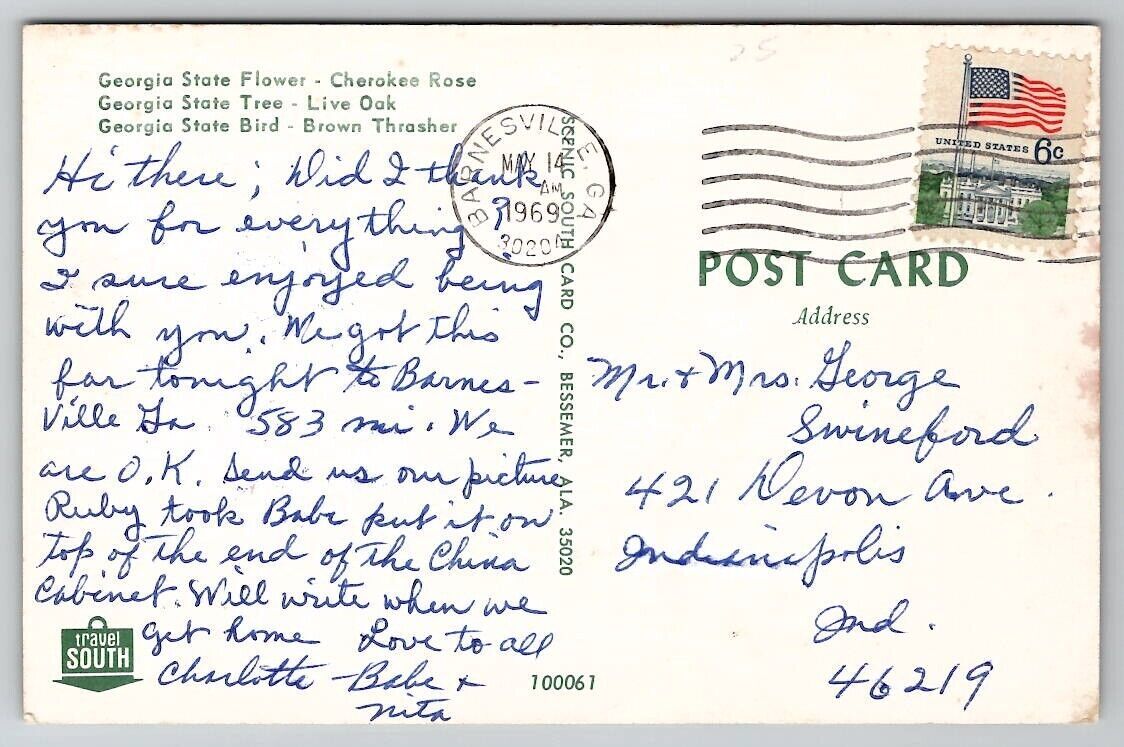 Georgia State Flower - Cherokee Rose
Georgia State Tree - Live Oak
Georgia State Bird - Brown Thrasher
Hi there; Did I thank
you for everything?
I sure enjoyed being
with you. We got this
far tonight to Barnes-
ville Ga 583 mi. We
are O.K. Send us our picture
Ruby took Babe put it on
top of the end of the China
Cabinet. Will write when we
get home Love to all
Charlotte Babe +
Nita
travel
SOUTH
100061
SCENIC SOUTH CARD CO., BESSEMER, ALA. 35020
BARNESVILLE, GA
MAY 14
AM
1969
30204
UNITED STATES 6c
POST CARD
Address
Mr. + Mrs. George
Swineford
421 Devon Ave.
Indianapolis
Ind.
46219